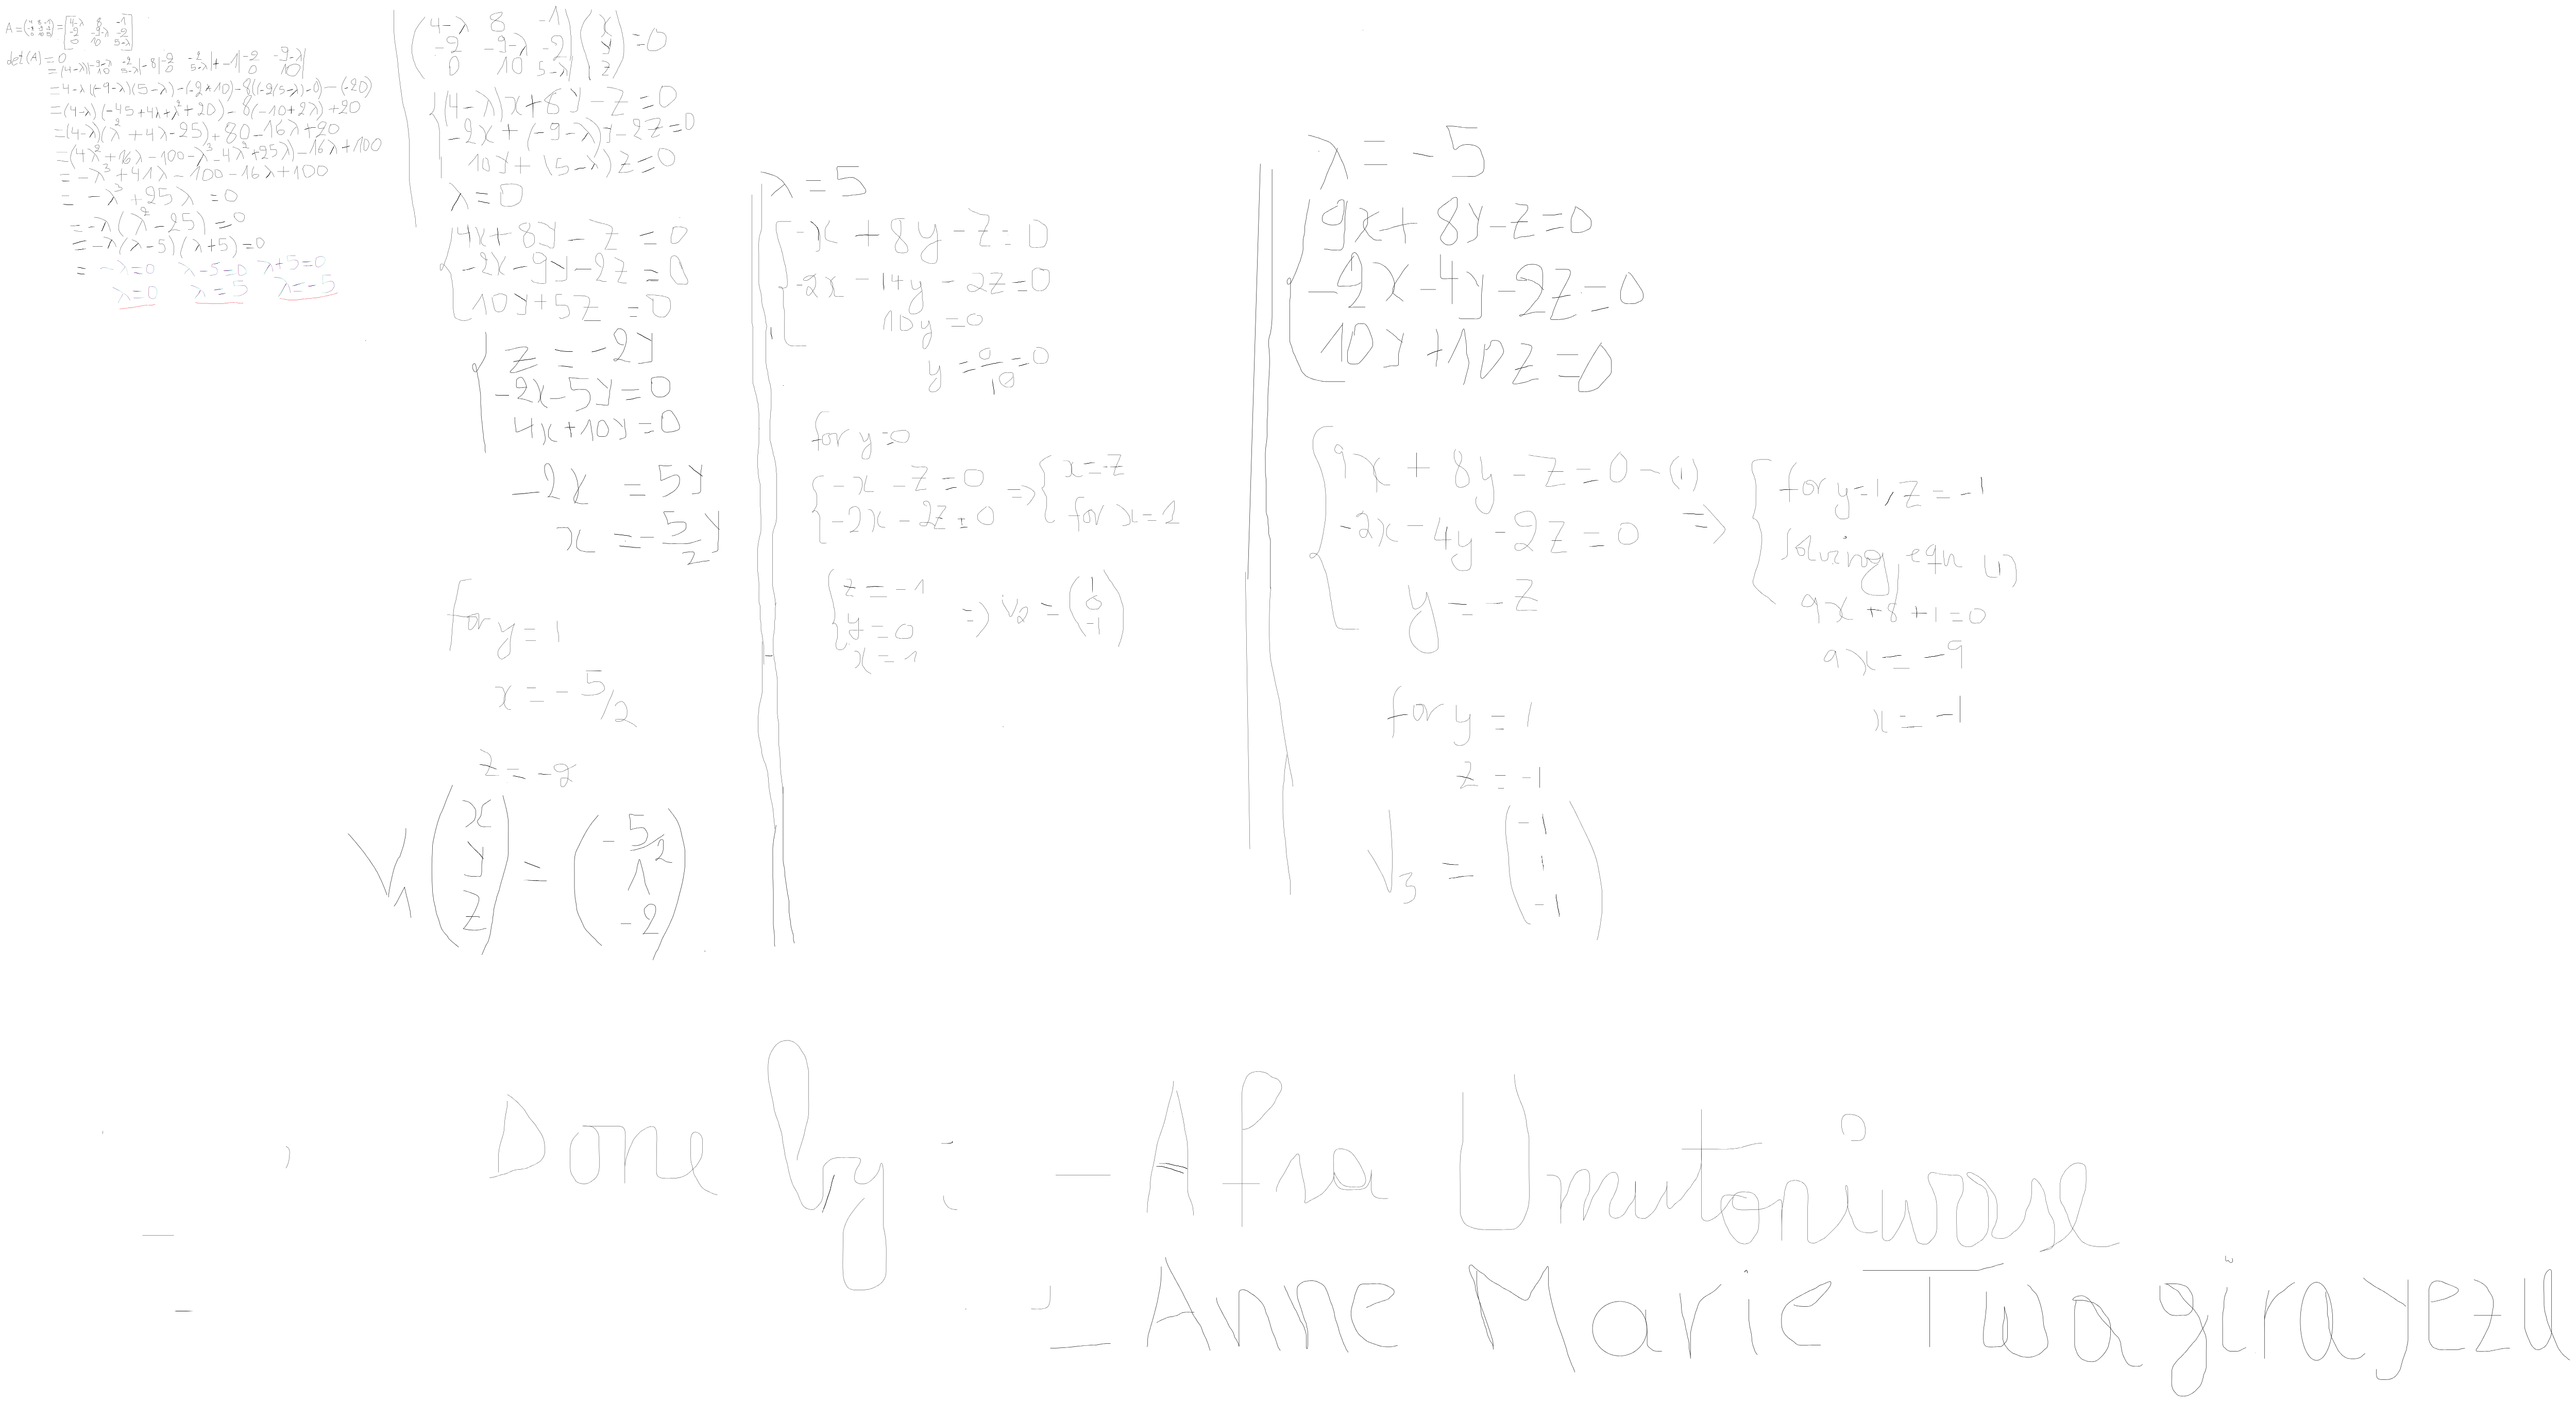 A = (4 8 -1 -2 -9 -2 0 10 5) = [4-λ 8 -1
-2 -9-λ -2
0 10 5-λ]
det(A) = 0
= (4-λ)|-9-λ -2 10 5-λ| - 8|-2 -2 0 5-λ| + -1|-2 -9-λ 0 10|
= 4-λ((-9-λ)(5-λ) - (-2*10) - 8((-2(5-λ)-0) - (-20)
= (4-λ)(-45+4λ+λ²+20) - 8(-10+2λ) +20
= (4-λ)(λ²+4λ-25)+80-16λ+20
= (4λ²+16λ-100-λ³-4λ²+25λ)-16λ+100
= -λ³+41λ-100-16λ+100
= -λ³+25λ = 0
= -λ(λ²-25) = 0
= -λ(λ-5)(λ+5) = 0
= -λ=0 λ-5=0 λ+5=0
λ=0 λ=5 λ=-5
(4-λ 8 -1
-2 -9-λ -2
0 10 5-λ) (x y z) = 0
(4-λ)x+8y-z=0
-2x+(-9-λ)y-2z=0
10y+(5-λ)z=0
λ=0
4x+8y-z=0
-2x-9y-2z=0
10y+5z=0
z=-2y
-2x-5y=0
4x+10y=0
-2x=5y
x=-5/2 y
for y=1
x=-5/2
z=-2
V1 (x y z) = (-5/2 1 -2)
λ=5
-x+8y-z=0
-2x-14y-2z=0
10y=0
y=0/10=0
for y=0
-x-z=0 ⇒ x=-z
-2x-2z=0 for x=1
z=-1
y=0 ⇒ V2 = (1 0 -1)
x=1
λ=-5
9x+8y-z=0
-2x-4y-2z=0
10y+10z=0
9x+8y-z=0-(1)
-2x-4y-2z=0 ⇒
y=-z
for y=1, z=-1
solving eqn (1)
9x+8+1=0
9x=-9
x=-1
for y=1
z=-1
V3 = (-1 1 -1)
Done by: -Afra Umutoniwase
-Anne Marie Twagirayezu